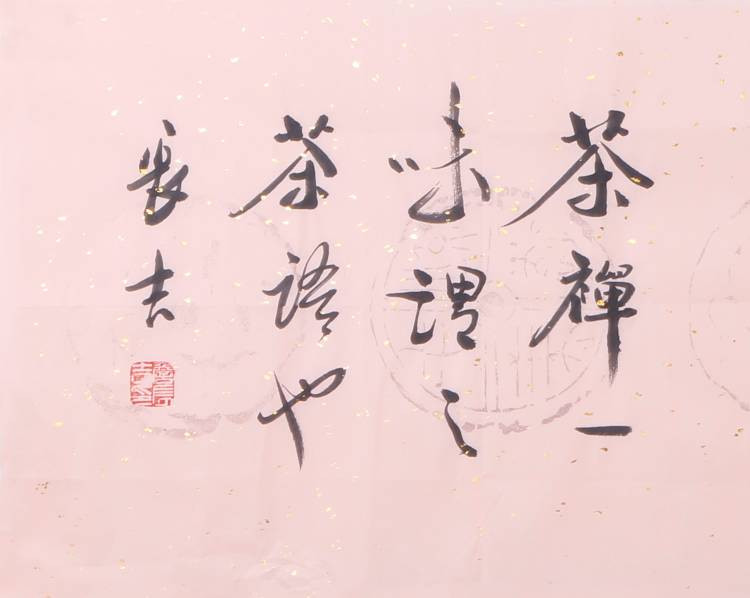 茶禪一
味謂之
茶語也
長吉